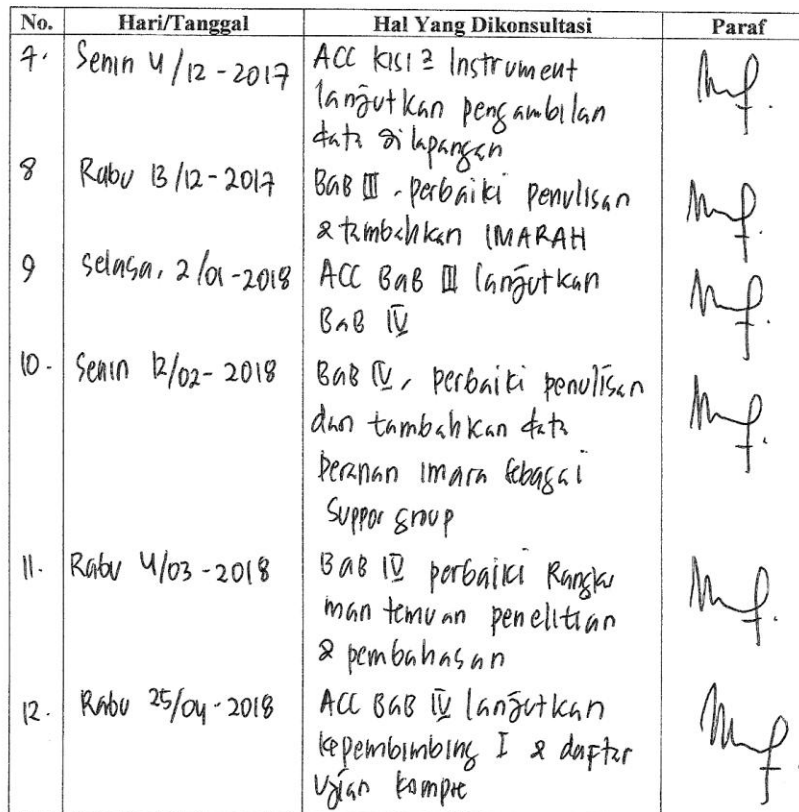 No. Hari/Tanggal Hal Yang Dikonsultasi Paraf
7. Senin 4/12-2017 ACC kisi2 Instrument
lanjutkan pengambilan
data dilapangan
8 Rabu 13/12-2017 BaB III, perbaiki penulisan
& tambahkan IMARAH
9 selasa, 2/01-2018 ACC BaB III lanjutkan
BaB IV
10. Senin 12/02-2018 BaB IV, perbaiki penulisan
dan tambahkan data
peranan imara sebagai
Suppor group
11. Rabu 4/03-2018 BaB IV perbaiki Rangku
man temuan penelitian
& pembahasan
12. Rabu 25/04-2018 ACC BaB IV lanjutkan
kepembimbing I & daftar
Ujian kompre